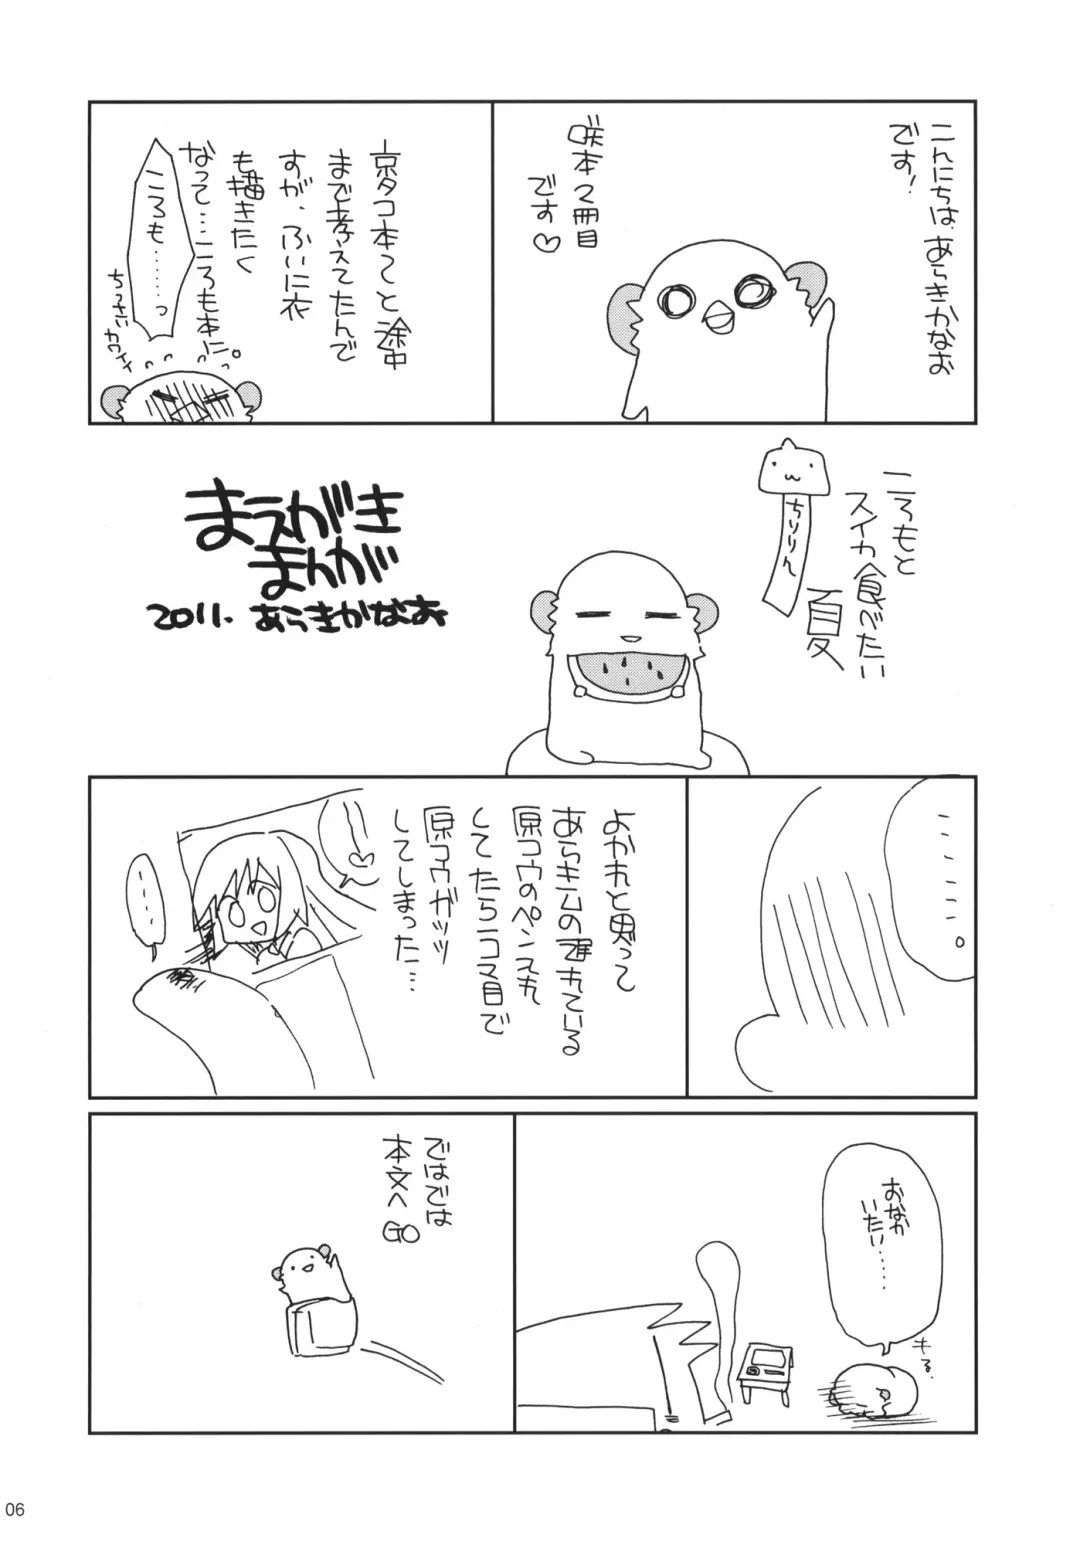 こんにちは、あらきかなお
です!
咲本2冊目
です♡
京タコ本でと途中
まで考えてたんで
すが、ふいに衣
も描きたく
なって…ころも本に。
ころも………っ
ちっさい
カワイイ
ころもと
スイカ食べたい
夏
ちりりん
まえがき
まんが
2011. あらきかなお
………。
よかれと思って
あらキムの遅れている
原コウのペン入れ
してたら2コマ目で
原コウガッツ
してしまった…
……
おなか
いたい……
キる
ではでは
本文へ
GO
06